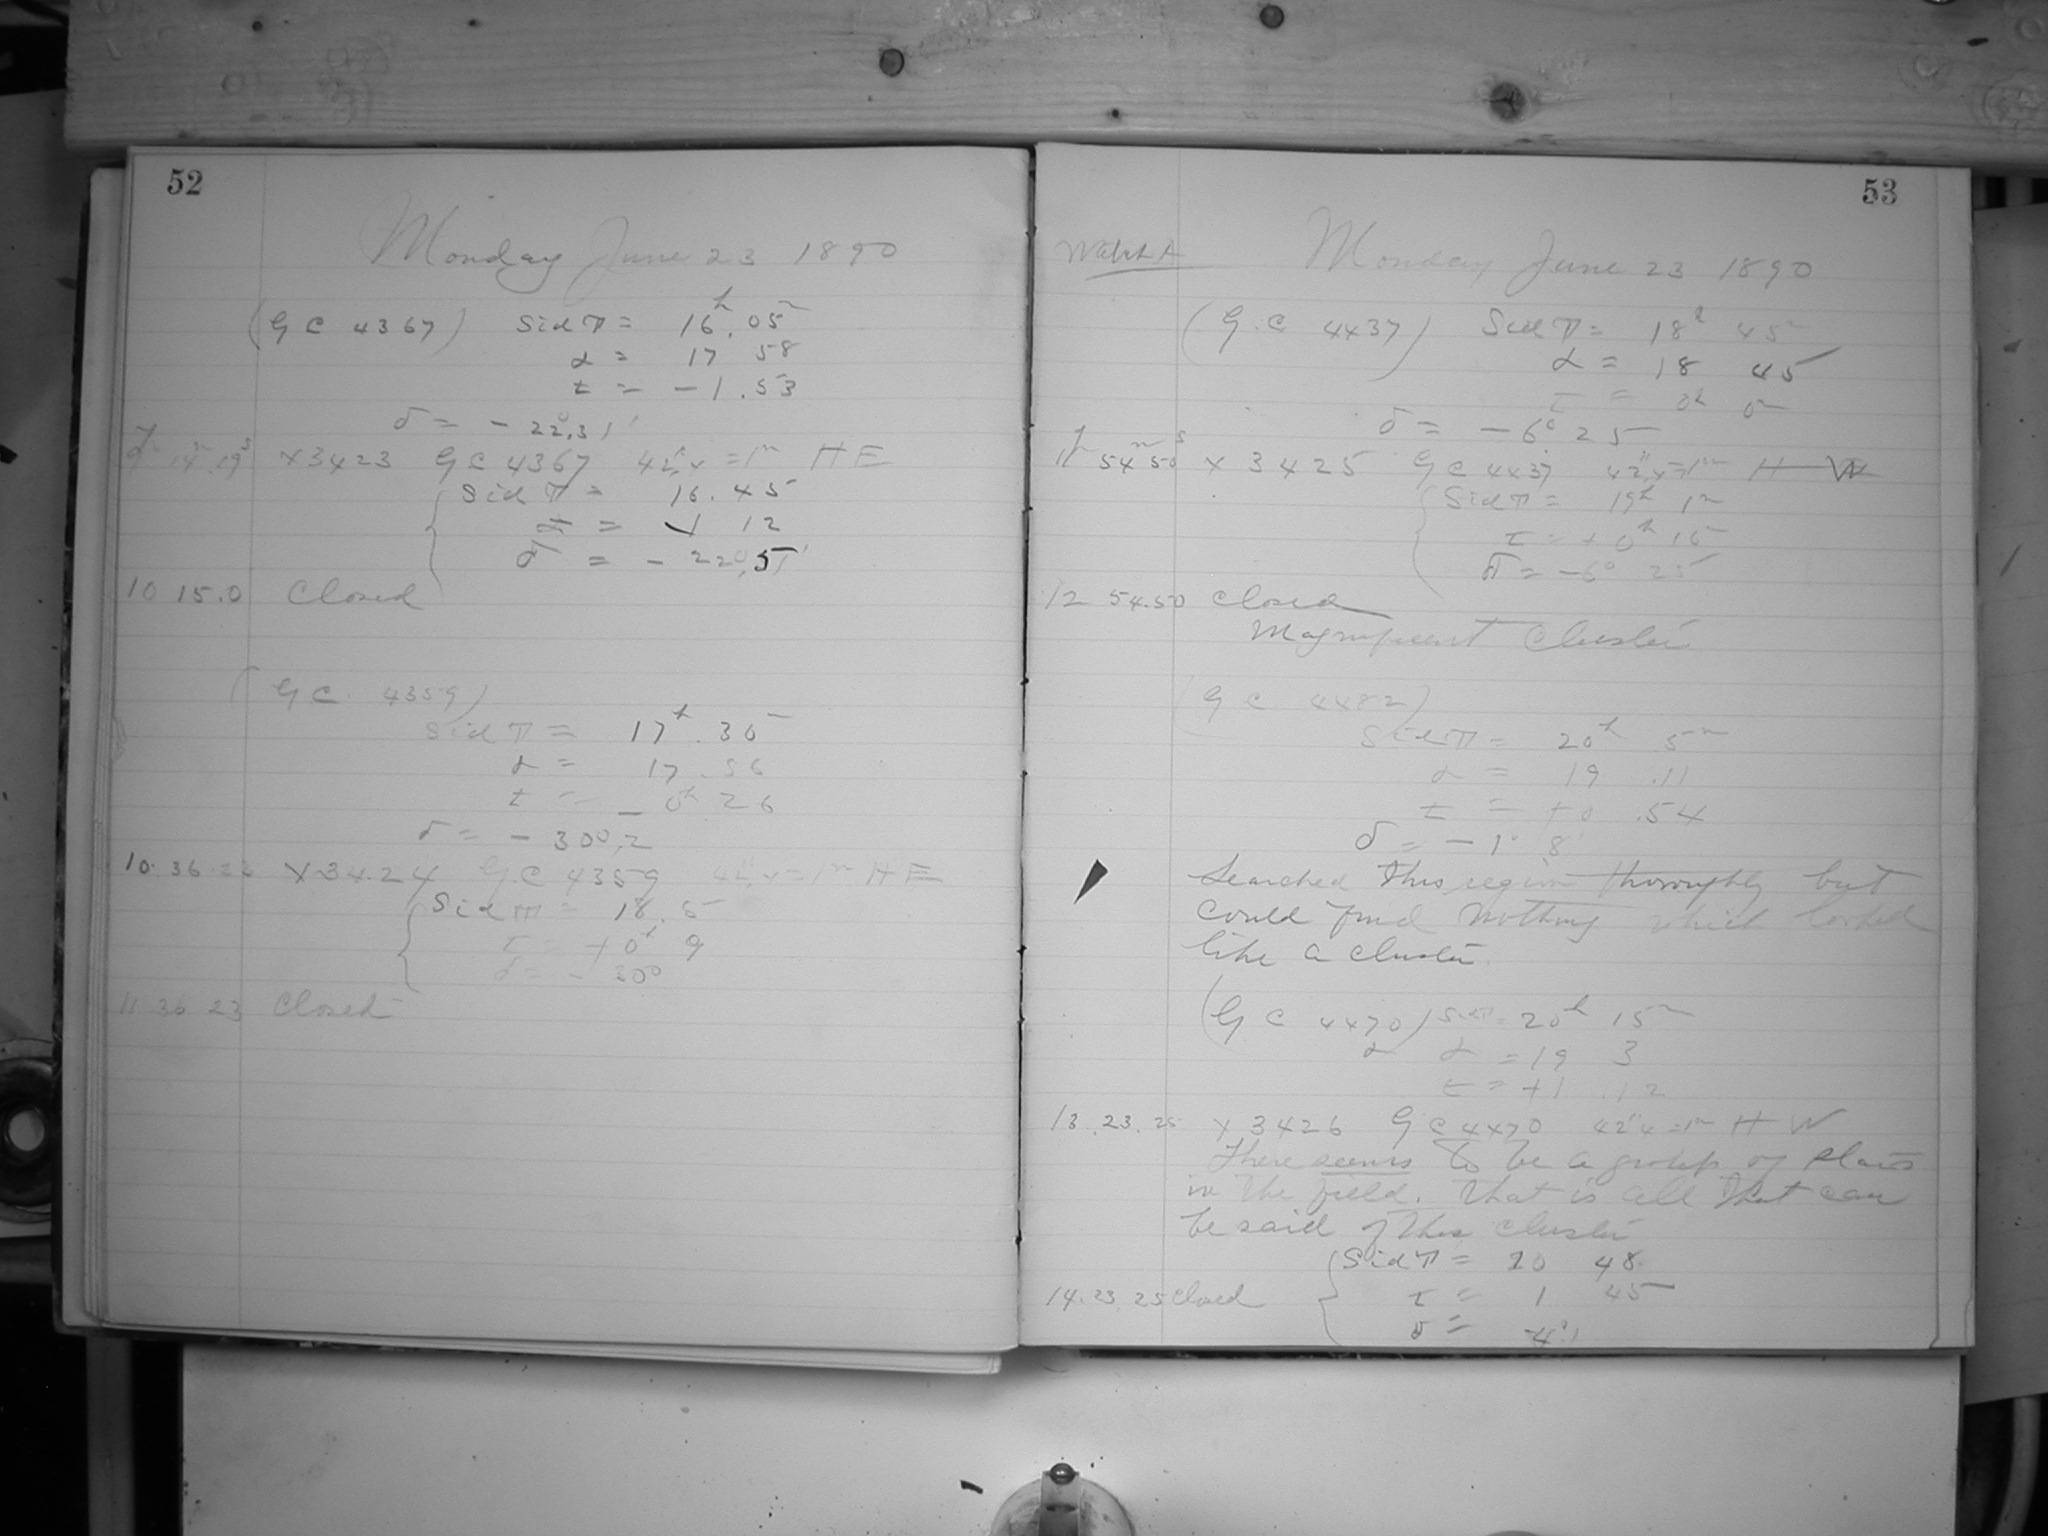 52
Monday June 23 1890
(G C 4367) Sid T = 16h.05m
α = 17 58
t = - 1.53
δ = - 22°,31'
9h 14m 19s X3423 GC 4367 42",4 = 1m H E
Sid T = 16.45
t = - 1 12
δ = - 22°,51'
10 15.0 Closed
(G C 4359)
Sid T = 17h.30m
α = 17.56
t = - 0h 26
δ = - 30°,2
10 36 22 X3424 G C 4359 42",4 = 1m H E
Sid T = 18.5
t = + 0h 9
δ = - 30°
11 36 23 Closed
53
Watch A
Monday June 23 1890
(G.C. 4437) Sid T = 18h 45m
α = 18 45
t = 0h 0m
δ = - 6° 25
11h 54m 50s X 3425 G C 4437 42",4 = 1m H W
Sid T = 19h 1m
t = + 0h 16m
δ = - 6° 25
12 54.50 Closed
Magnificent Cluster
(G C 4482)
Sid T = 20h 5m
α = 19 .11
t = + 0 .54
δ = - 1° 8'
Searched this region thoroughly but
could find nothing which looked
like a cluster.
(G C 4470) Sid T = 20h 15m
α α = 19 3
t = +1 .12
13.23.25 X 3426 G C 4470 42",4 = 1m H W
There seems to be a group of stars
in the field. That is all that can
be said of this cluster
Sid T = 20 48
t = 1 45
14.23 25 Closed
δ = -4°.1